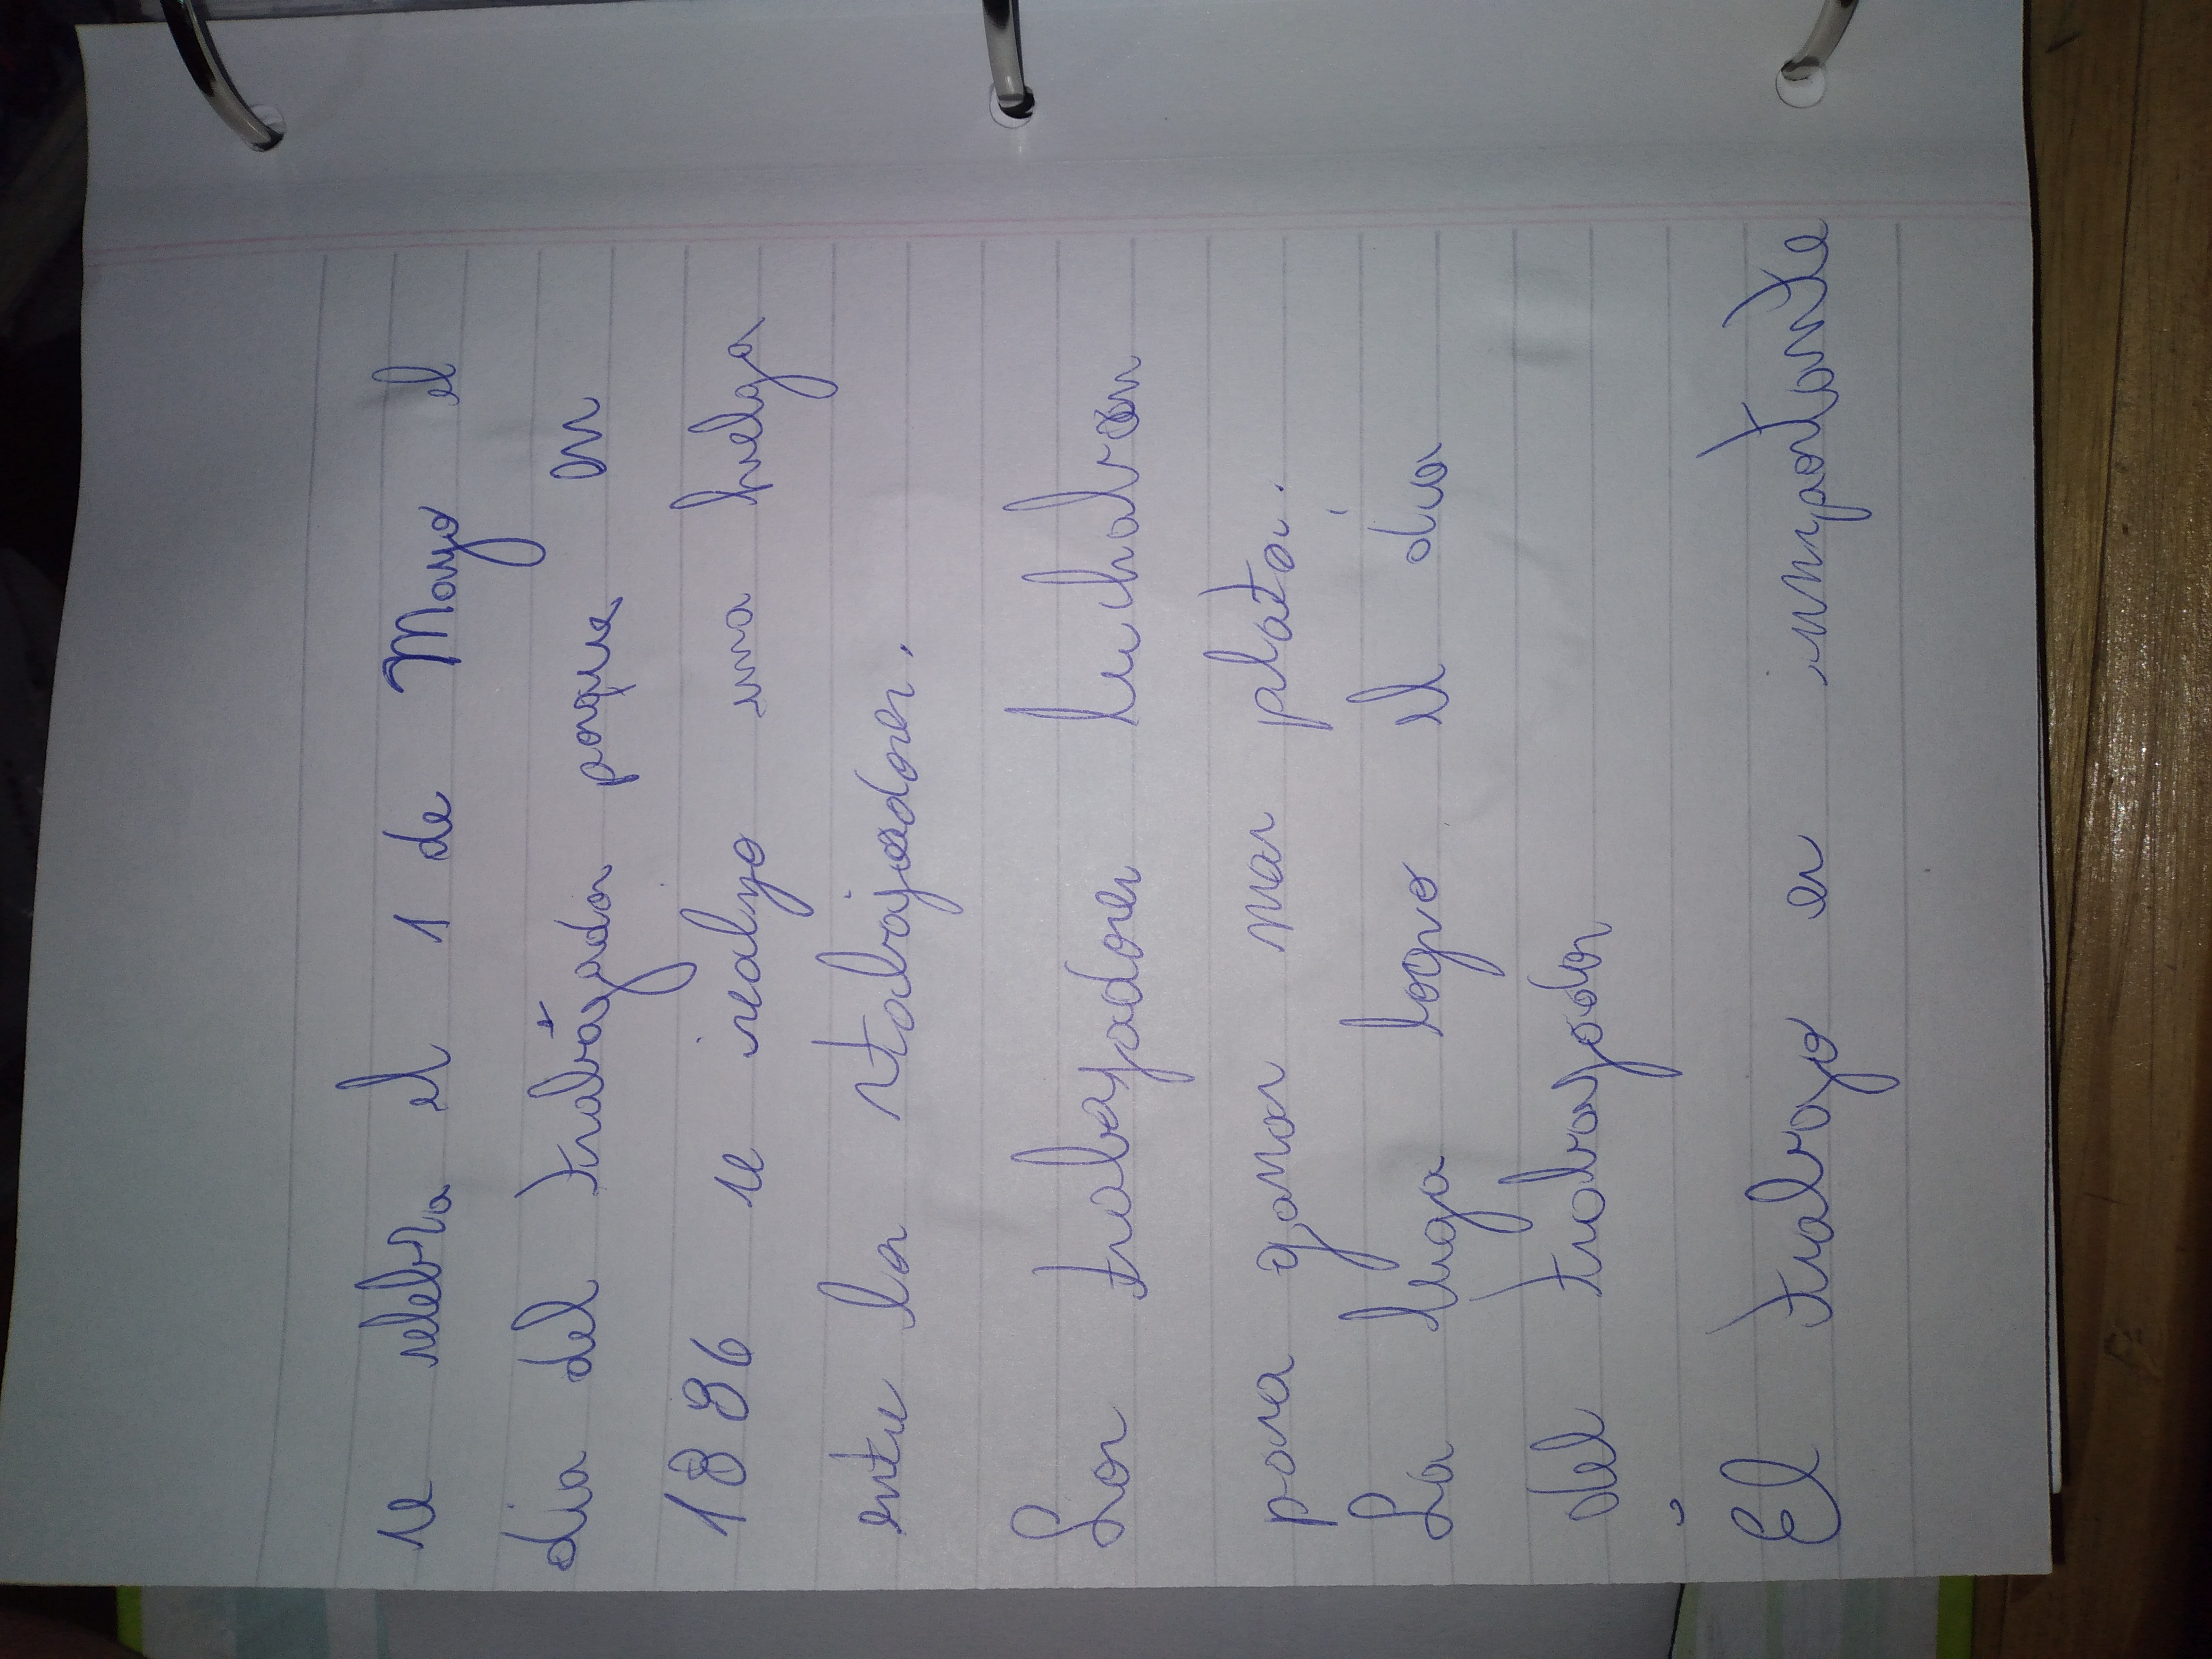 se selebra el 1 de Mayo el
dia del trabajador porque en
1886 se realizo una huelga
entre los trabajadores.
Los trabajadores lucharon
para ganar mas plata.
La luga logro el día
del trabajador
El trabajo es importante